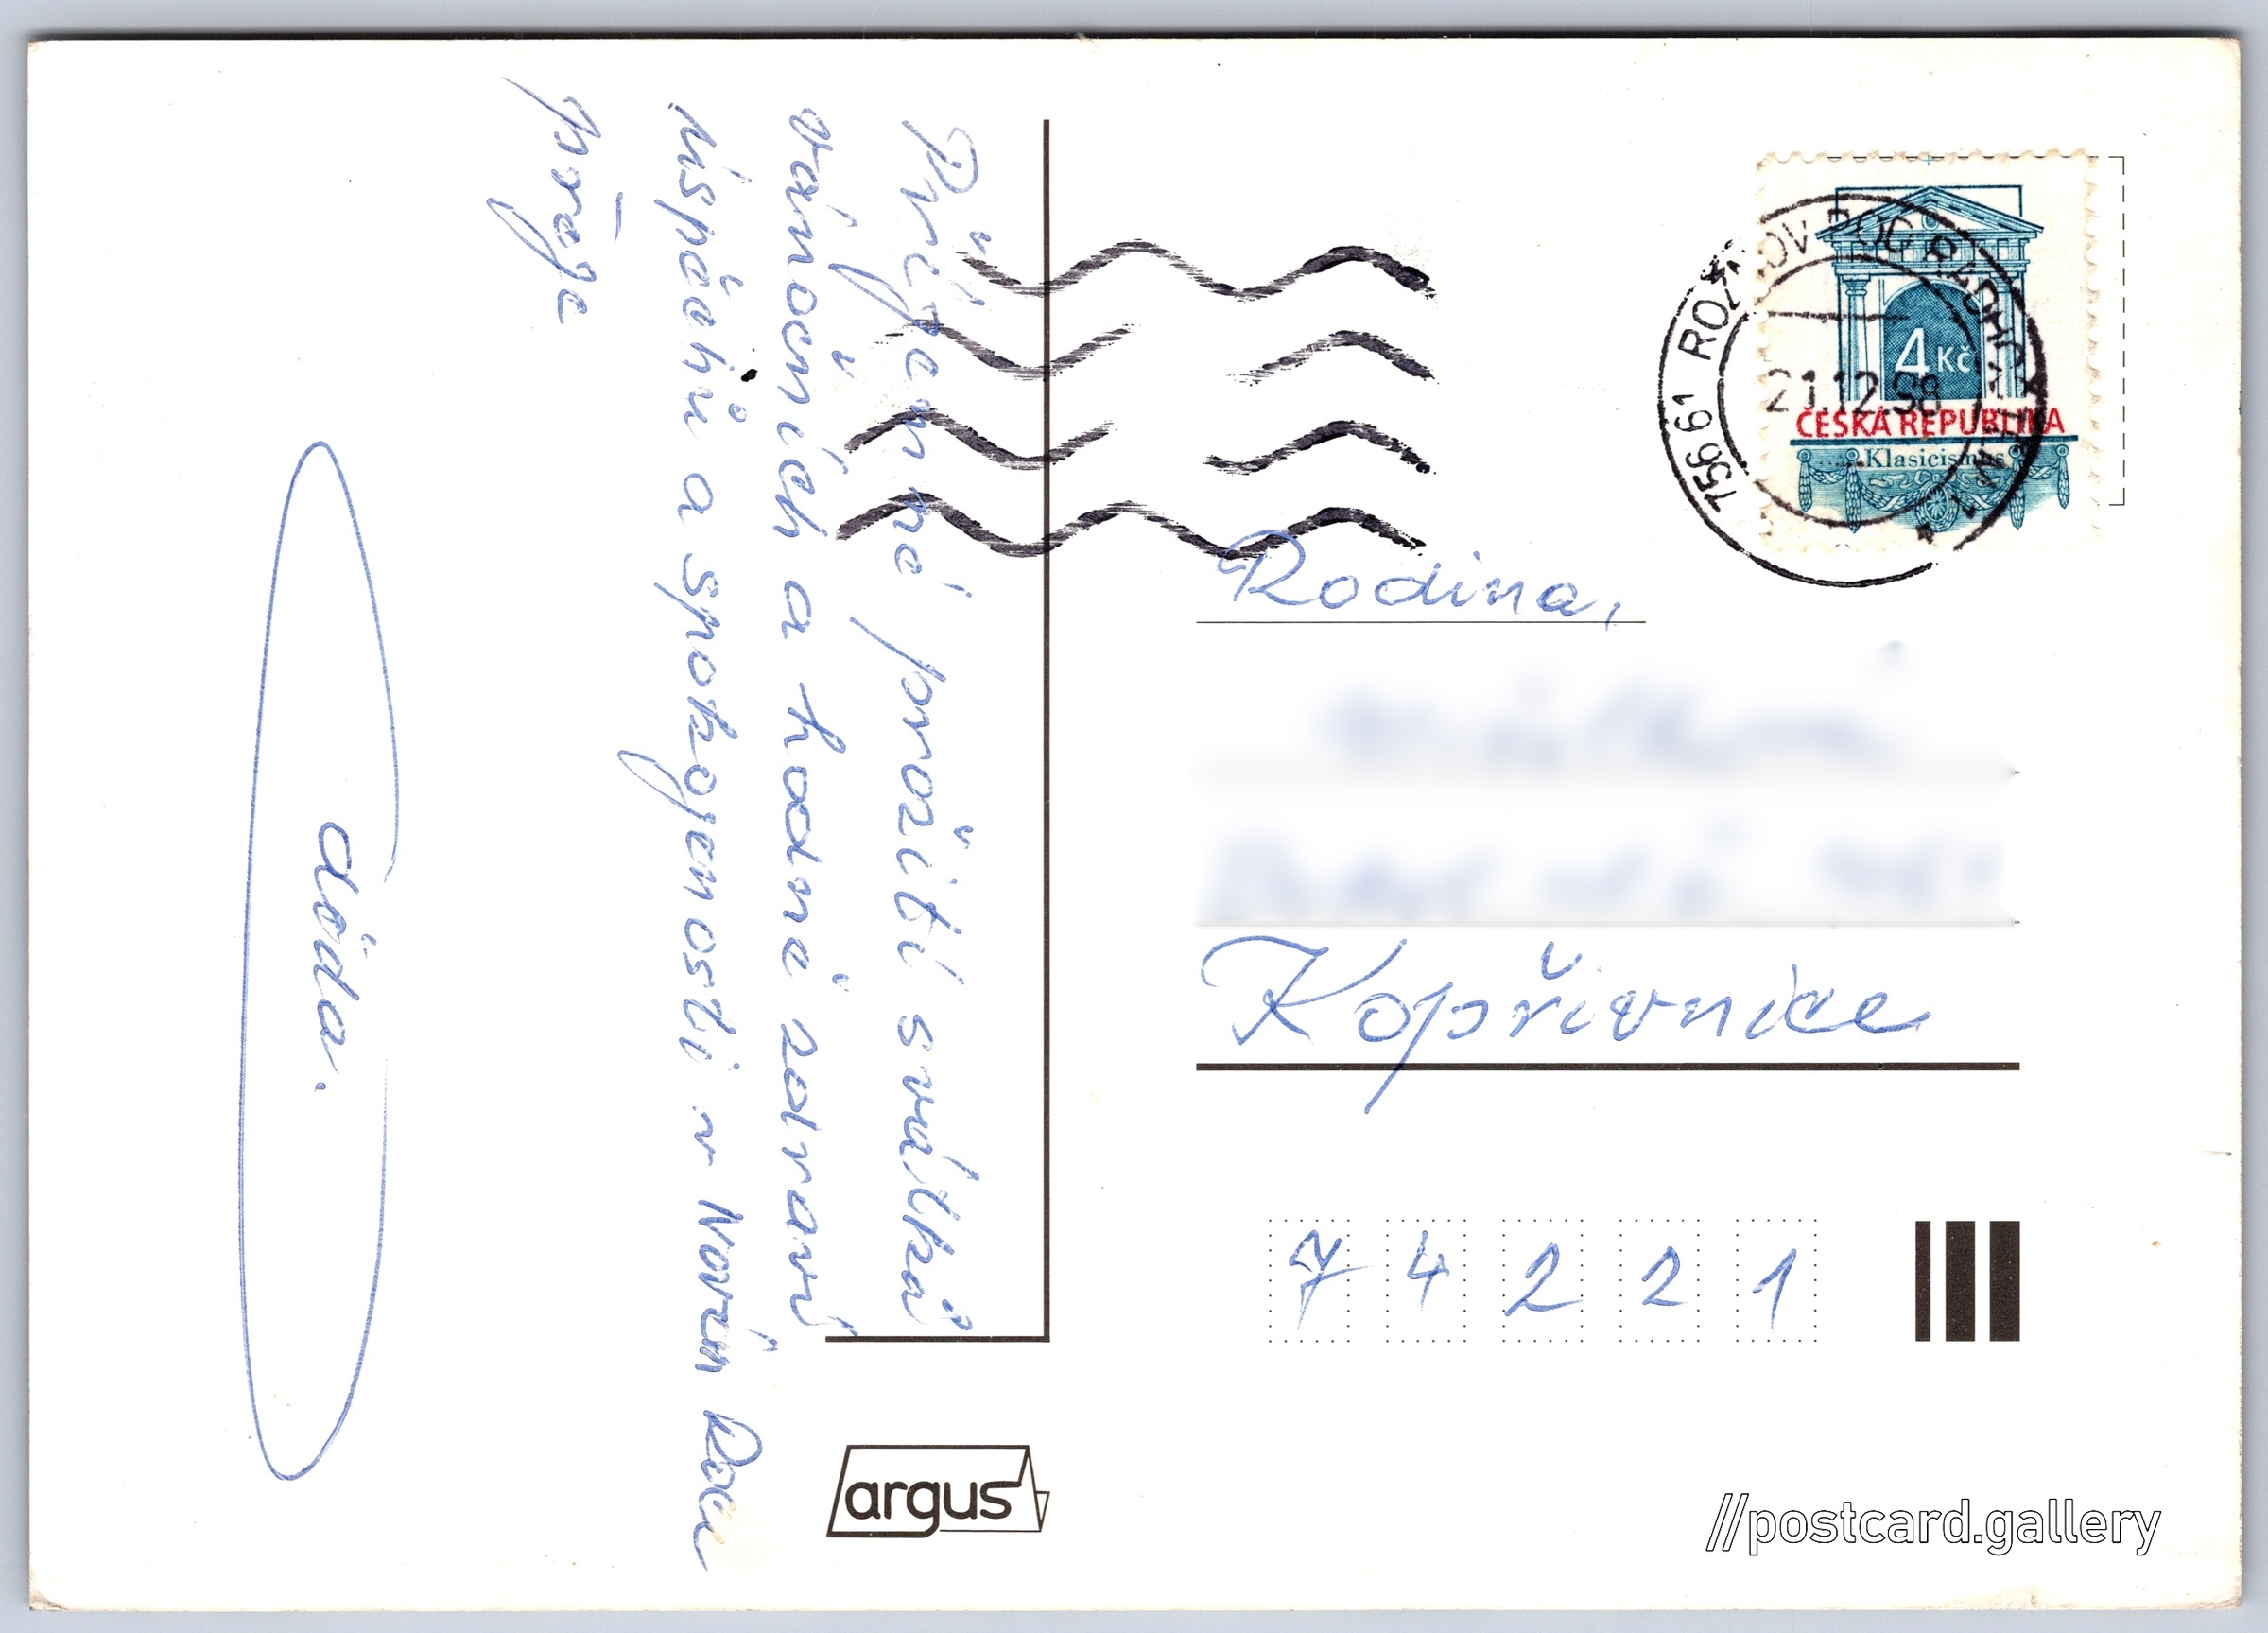 Příjemné prožití svátků
vánočních a hodně zdraví
úspěchů a spokojenosti v Novém Roce
přeje
děda.
756 61 ROŽNOV POD RADHOŠTĚM 1
21.12.98
4 Kč
ČESKÁ REPUBLIKA
Klasicismus
Rodina,
Kopřivnice
7 4 2 2 1
argus
//postcard.gallery